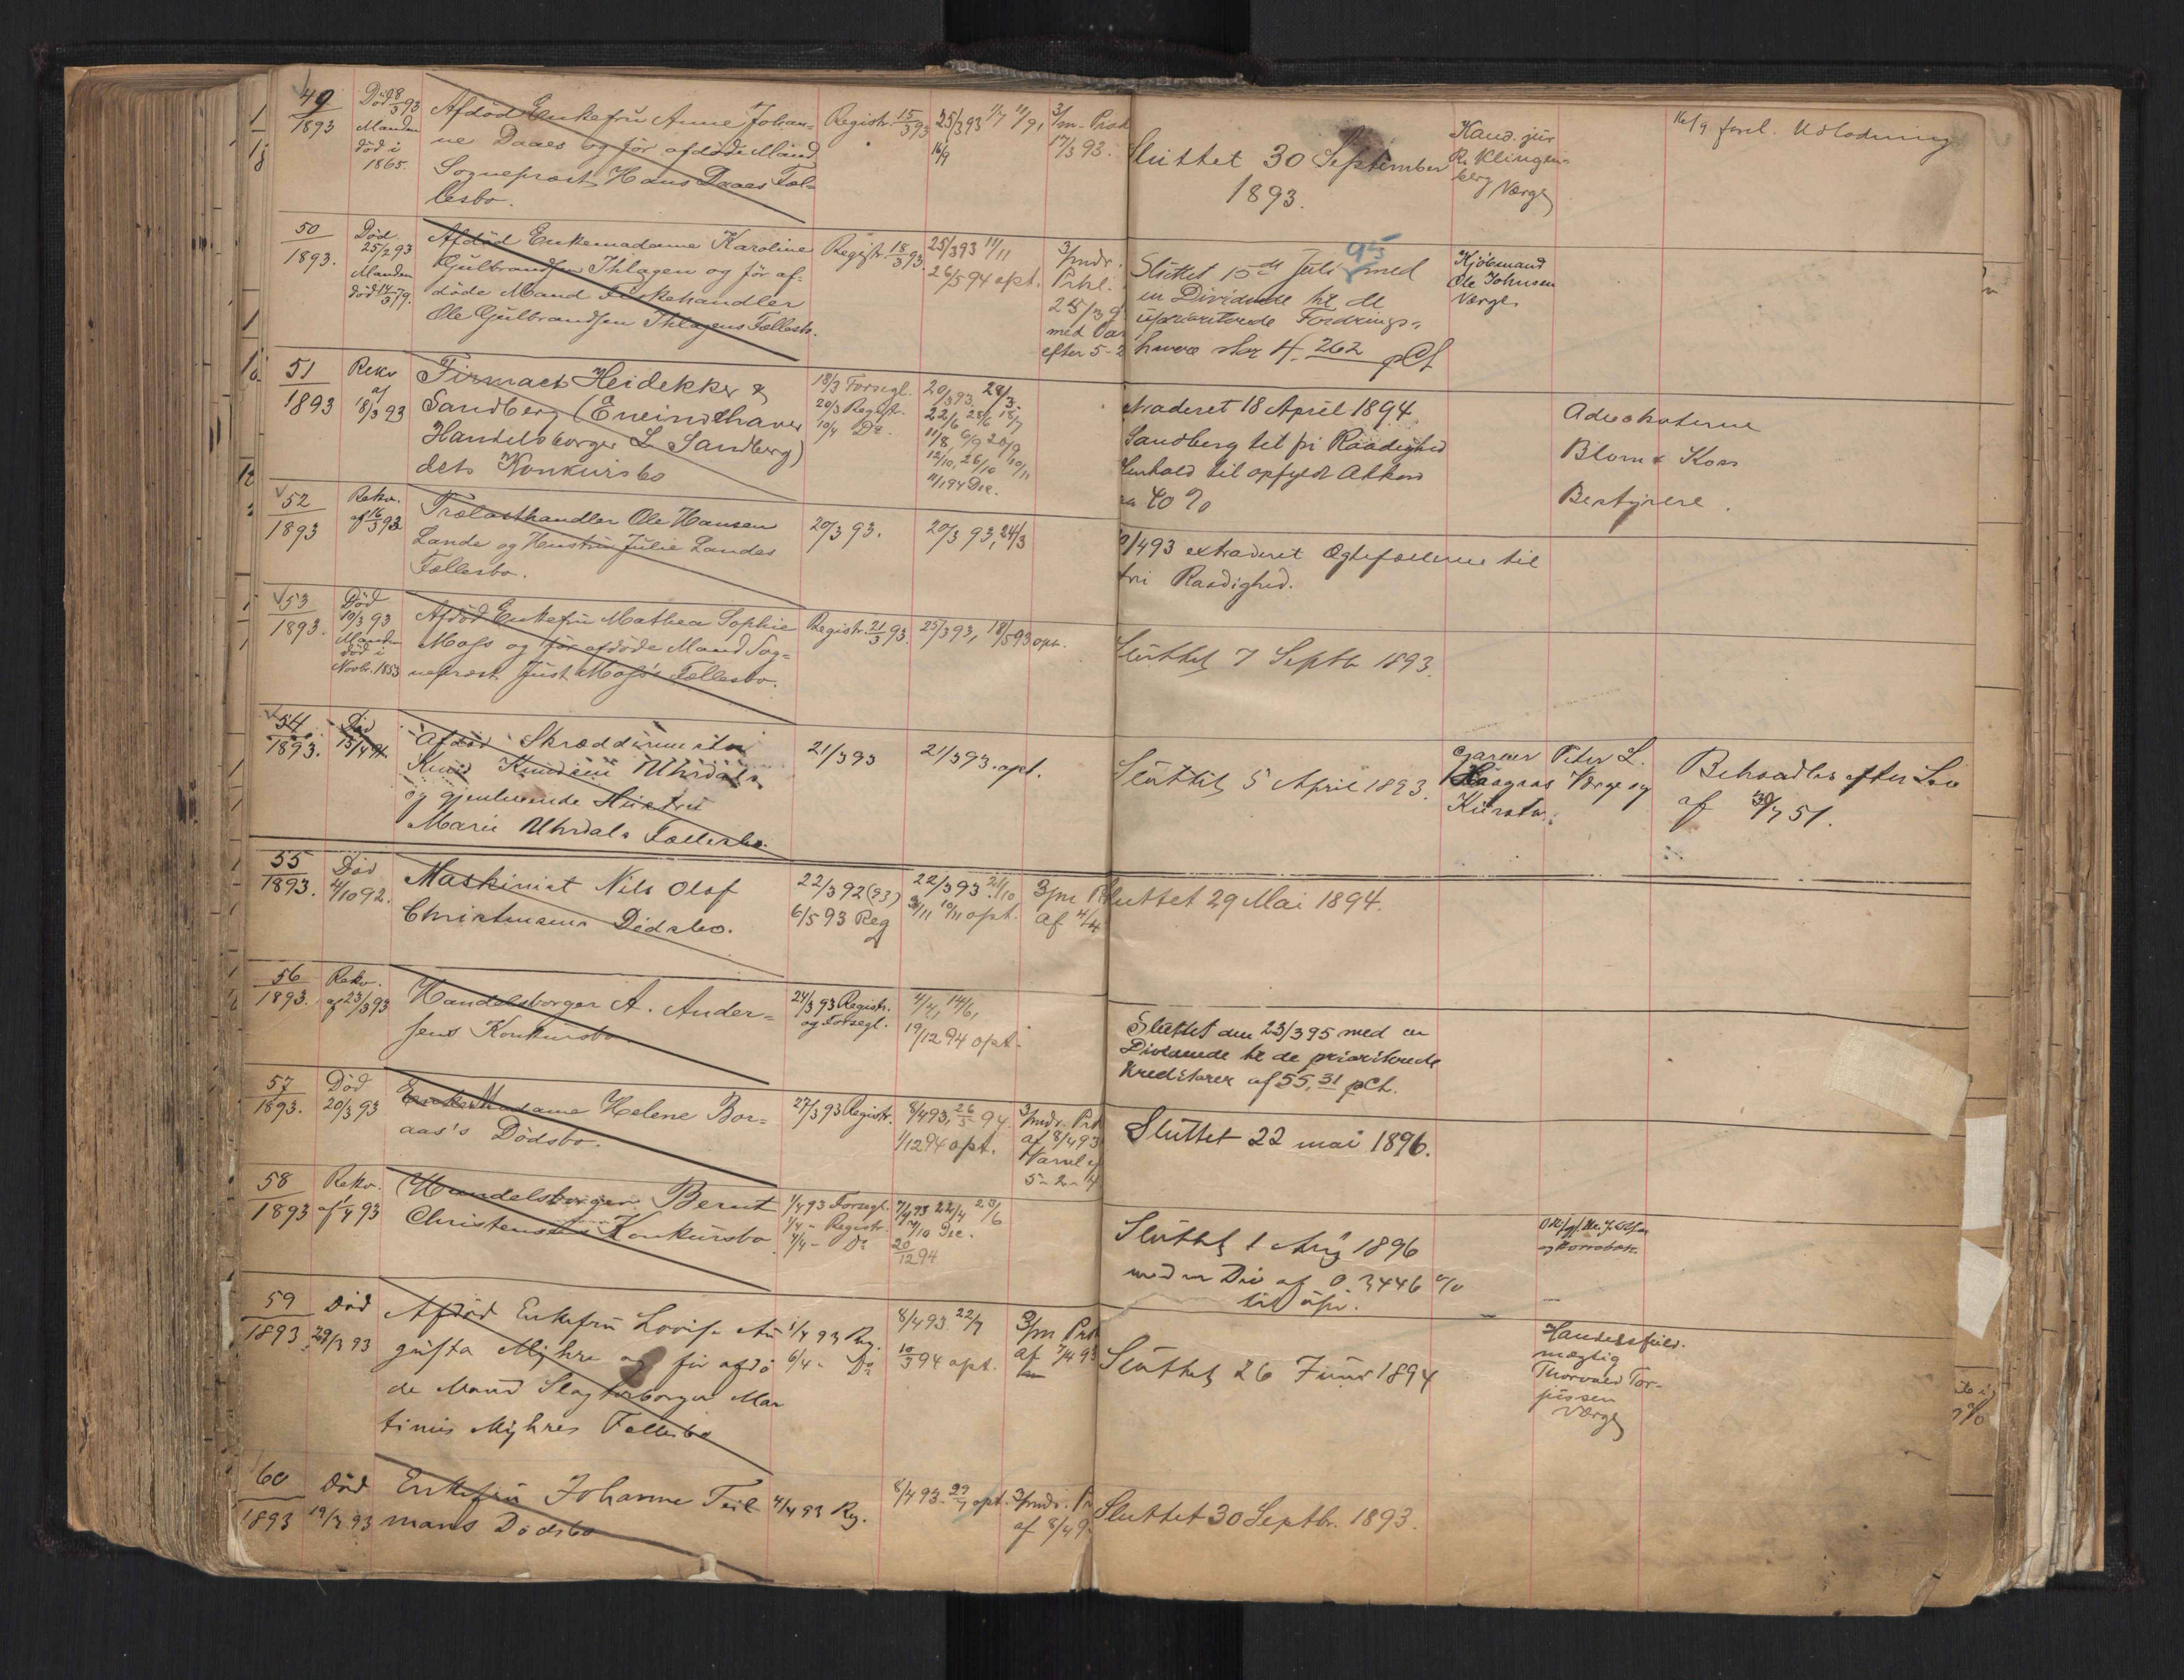 49
1893
Død 8/3 93
Manden
død i
1865.
Afdød Enkefru Anne Johan-
ne Daaes og før afdøde Mand
Sogneprest Hans Daaes Fæl-
lesbo.
Registr. 15/3 93
25/3 93 11/7 11/9,
16/9
3/m. Prok
17/3 93.
Sluttet 30 September
1893.
Kand. jur
R. Klingen-
berg Værge
16/9 forel. Udlodning
50
1893.
Død
25/2 93
Manden
død 14/3 79.
Afdød Enkemadame Karoline
Gulbrandsen Ihlagen og før af-
døde Mand Fiskehandler
Ole Gulbrandsen Ihlagens Fællesbo.
Registr. 18/3 93.
25/3 93 11/11
26/5 94 opt.
3/mdr.
Prkl.
25/3 9
med Var
efter 5-2
95
Sluttet 15de Juli med
en Dividende til de
uprioriterede Fordrings-
havere stor 4.262 pCt
Kjøbmand
Ole Johnsen
Værge
51
1893
Rekv
af
18/3 93
Firmaet Heidekker &
Sandberg (Eneindehaver
Handelsborger L. Sandberg)
dets Konkursbo
18/3 Forsegl.
20/3 Registr.
10/4 Do.
20/3 93, 28/3.
22/6 28/6 18/7
11/8, 6/9 20/9
12/10, 26/10 10/11
11/1 94 Dec.
xtraderet 18 April 1894
Sandberg til fri Raadighed
Henhold til opfyldt Akkord
40 %
Advokaterne
Blom & Koss
Bestyrere.
52
1893
Rekv.
af 16/3 93
Trælasthandler Ole Hansen
Lande og Hustru Julie Landes
Fællesbo.
20/3 93.
20/3 93, 24/3
/4 93 extraderet Ægtefællerne til
fri Raadighed.
53
1893.
Død
10/3 93
Manden
død i
Novbr. 1853
Afdød Enkefru Mathea Sophie
Moss og før afdøde Mand Sog-
neprest Just Moss's Fællesbo.
Registr. 21/3 93.
25/3 93, 18/5 93 opt.
Sluttet 7 Septb 1893.
54
1893.
Død
Afdød Skræddermester
Knud Knudsen Uhrdals
og gjenlevende Hustru
Marie Uhrdals Fællesbo.
21/3 93
21/3 93. opt.
Sluttet 5 April 1893.
Garver Peter L.
Haagaas Værge og
Kurator.
Behandles efter Lov
af 30/7 51.
55
1893.
Død
4/10 92.
Maskinist Nils Olof
Christensens Dødsbo.
22/3 92 (93)
6/5 93 Reg
22/3 93 21/10
10/11 opt.
3/m Pr
af 4/4
Sluttet 29 Mai 1894.
56
1893.
Rekv.
af 23/3 93
Handelsborger A. Ander-
sens Konkursbo
24/3 93 Registr.
og Forsegl.
4/4, 14/6,
19/12 94 opt.
Sluttet den 23/3 95 med en
Dividende til de prioriterede
Kreditorer af 55,31 pCt.
57
1893.
Død
20/3 93
Enke Madame Helene Bor-
aas's Dødsbo.
27/3 93 Registr.
8/4 93, 26/5 94
1/12 94 opt.
3/mdr. Pr
af 8/4 93
Varsel ef
5-2-
Sluttet 22 mai 1896.
58
1893
Rekv.
af 1/4 93
Handelsborger Bernt
Christensens Konkursbo
1/4 93 Forsegl.
1/4 - Registr.
4/4 - Do
7/4 93 22/4 23/6
/10 Dec.
20/12 94
Sluttet 1 Aug 1896
med en Div af 0.3446 %
til upr.
59
1893
Død
29/3 93
Afdød Enkefru Lovise Au
gusta Myhre og før afdø
de Mand Slagterborger Mar
tinus Myhres Fællesbo
1/4 93 Reg.
6/4 - Do
8/4 93. 22/7
10/3 94 opt.
3/m Pro
af 7/4 93
Sluttet 26 Juni 1894
Handelsfuld-
mægtig
Thorvald Tor-
jussen
Værge
60
1893
Død
19/3 93
Enkefru Johanne Teil-
mans Dødsbo
4/4 93 Reg.
8/4 93. 29/7 opt.
3/mdr. Pr
af 8/4 9
Sluttet 30 Septbr. 1893.